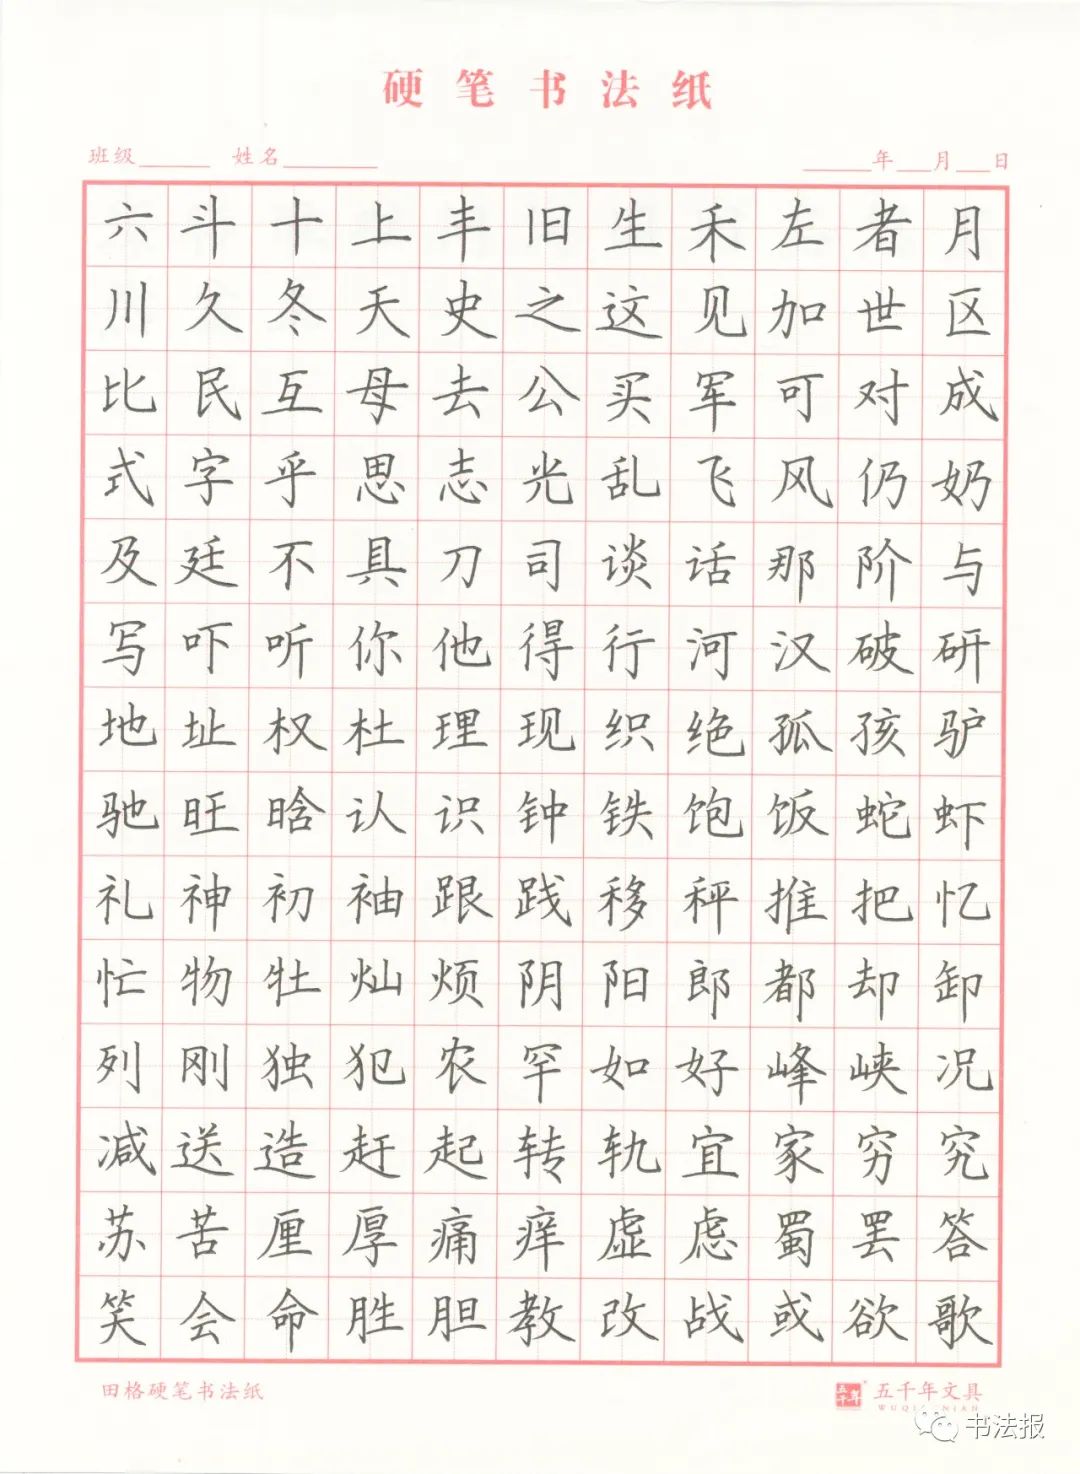 硬笔书法纸
班级 姓名 年 月 日
六斗十上丰旧生禾左者月
川久冬天史之这见加世区
比民互母去公买军可对成
式字乎思志光乱飞风仍奶
及廷不具刀司谈话那阶与
写吓听你他得行河汉破研
地址权杜理现织绝孤孩驴
驰旺晗认识钟铁饱饭蛇虾
礼神初袖跟践移秤推把忆
忙物牡灿烦阴阳郎都却卸
列刚独犯农罕如好峰峡况
减送造赶起转轨宜家穷究
苏苦厘厚痛痒虚虑蜀罢答
笑会命胜胆教改战或欲歌
田格硬笔书法纸
五千年 五千年文具
书法报